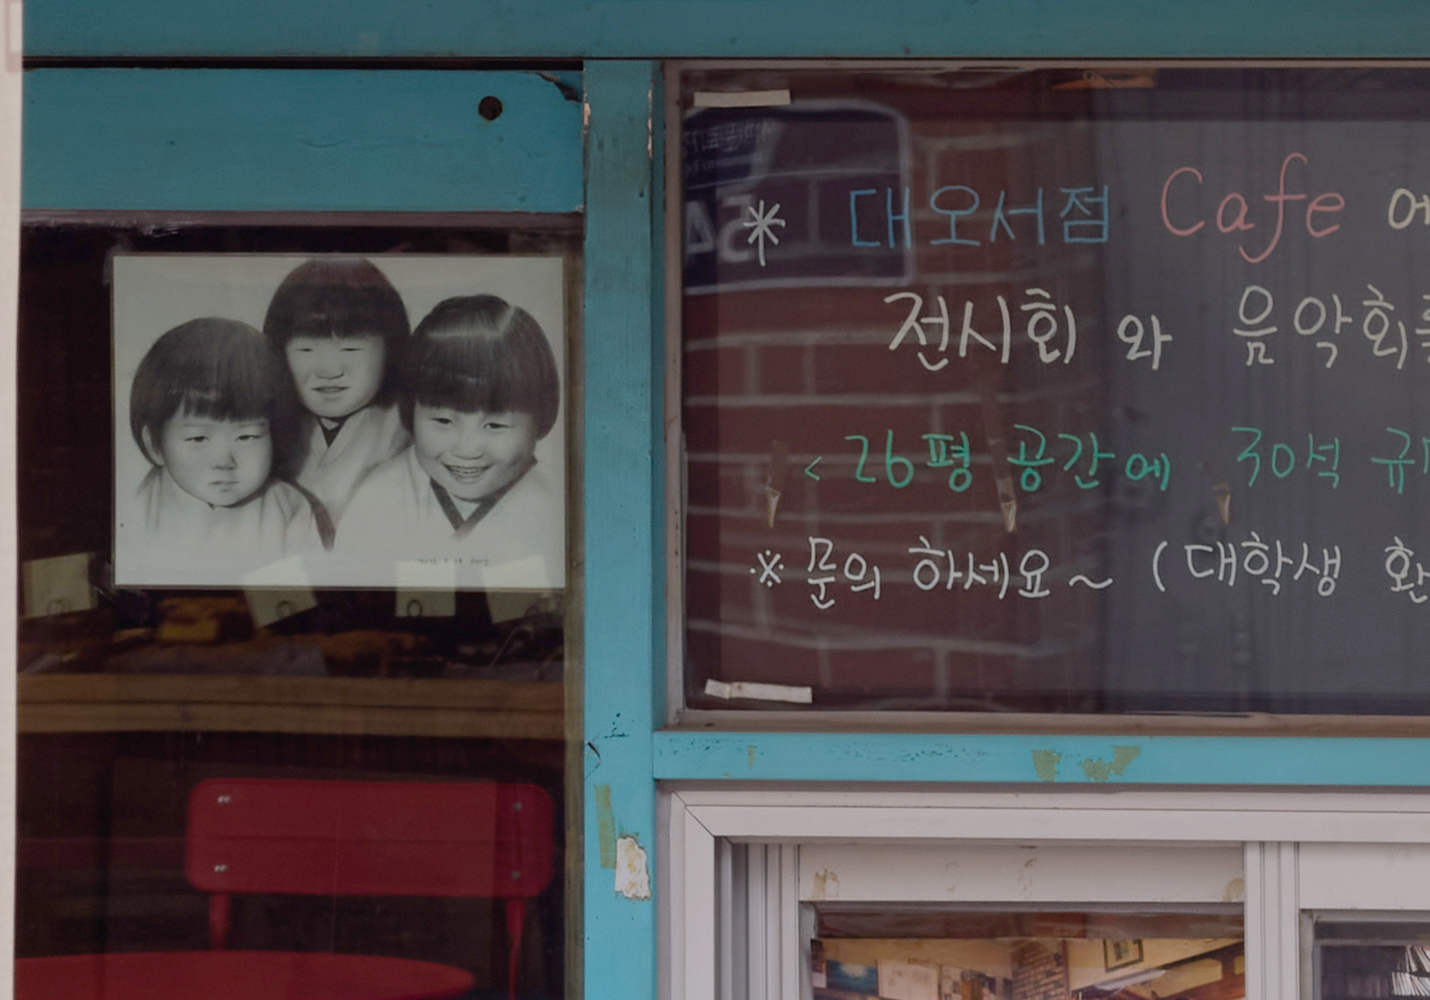 * 대오서점 Cafe 에
전시회 와 음악회를
< 26평 공간에 30석 규
※ 문의 하세요~ (대학생 환